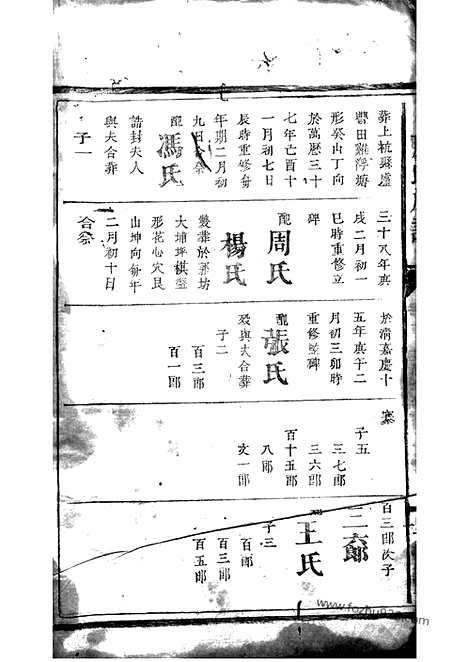 葬上杭縣盧
豐田雞浮塘
形癸山丁向
於萬曆三十
七年己酉十
一月初七日
辰時重修每
年期二月初
九日合祭
配馮氏
誥封夫人
與夫合葬
子一
三十八年庚
戌二月初一
巳時重修立
碑
配周氏
楊氏
大埔坪棋盤
形花心穴艮
山坤向每年
二月初十日
合祭
於清嘉慶十
五年庚午二
月初三卯時
重修豎碑
配張氏
歿與夫合葬
子二
百三郎
百一郎
子五
三七郎
三六郎
百十五郎
八郎
文一郎
百三郎次子
三六郎
王氏
子三
百郎
百三郎
百五郎
www.fozhu920.com